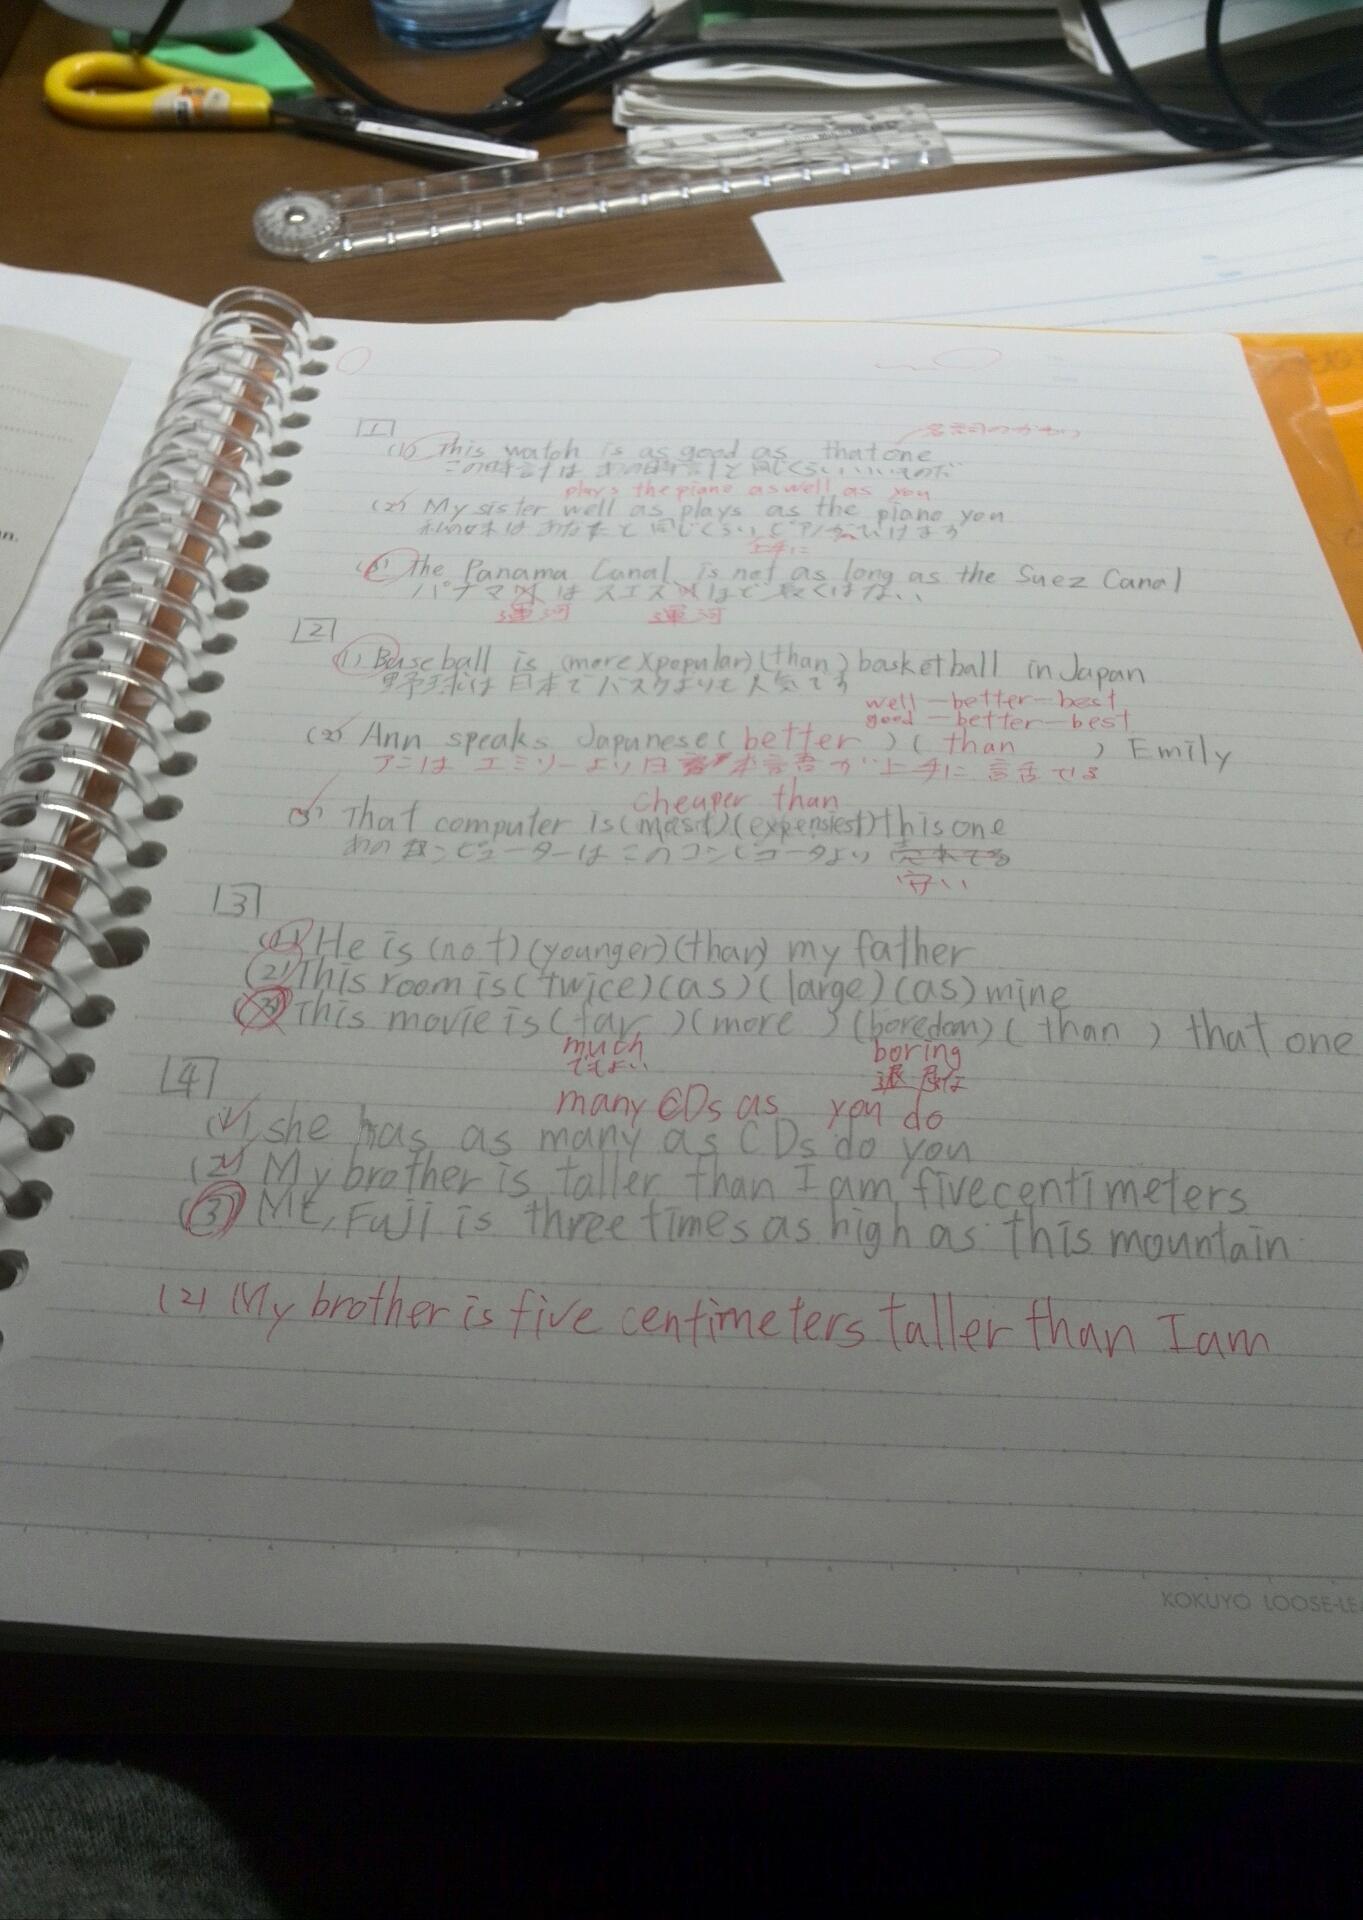 [1]
名詞のかわり
(1) This watch is as good as that one
この時計はあの時計と同じくらいいいものだ
plays the piano as well as you
(2) My sister well as plays as the piano you
私の妹はあなたと同じくらいピアノがひけます
上手に
(3) The Panama Canal is not as long as the Suez Canal
パナマ はスエズ ほど長くはない
運河 運河
[2]
(1) Baseball is (more)(popular)(than) basketball in Japan
野球は日本でバスケよりも人気です
well-better-best
good-better-best
(2) Ann speaks Japanese (better)(than) Emily
アンは エミリーより日本語が上手に
cheaper than
(3) That computer is (mosd)(expensiest) this one
あのコンピューターはこのコンピュータより 売れてる
安い
[3]
(1) He is (not)(younger)(than) my father
(2) This room is (twice)(as)(large)(as) mine
(3) This movie is (far)(more)(boredom)(than) that one
much boring
でもよい 退屈な
[4]
many CDs as you do
(1) she has as many as CDs do you
(2) My brother is taller than I am fivecentimeters
(3) Mt, Fuji is three times as high as this mountain
(2) My brother is five centimeters taller than I am
KOKUYO LOOSE-LEA